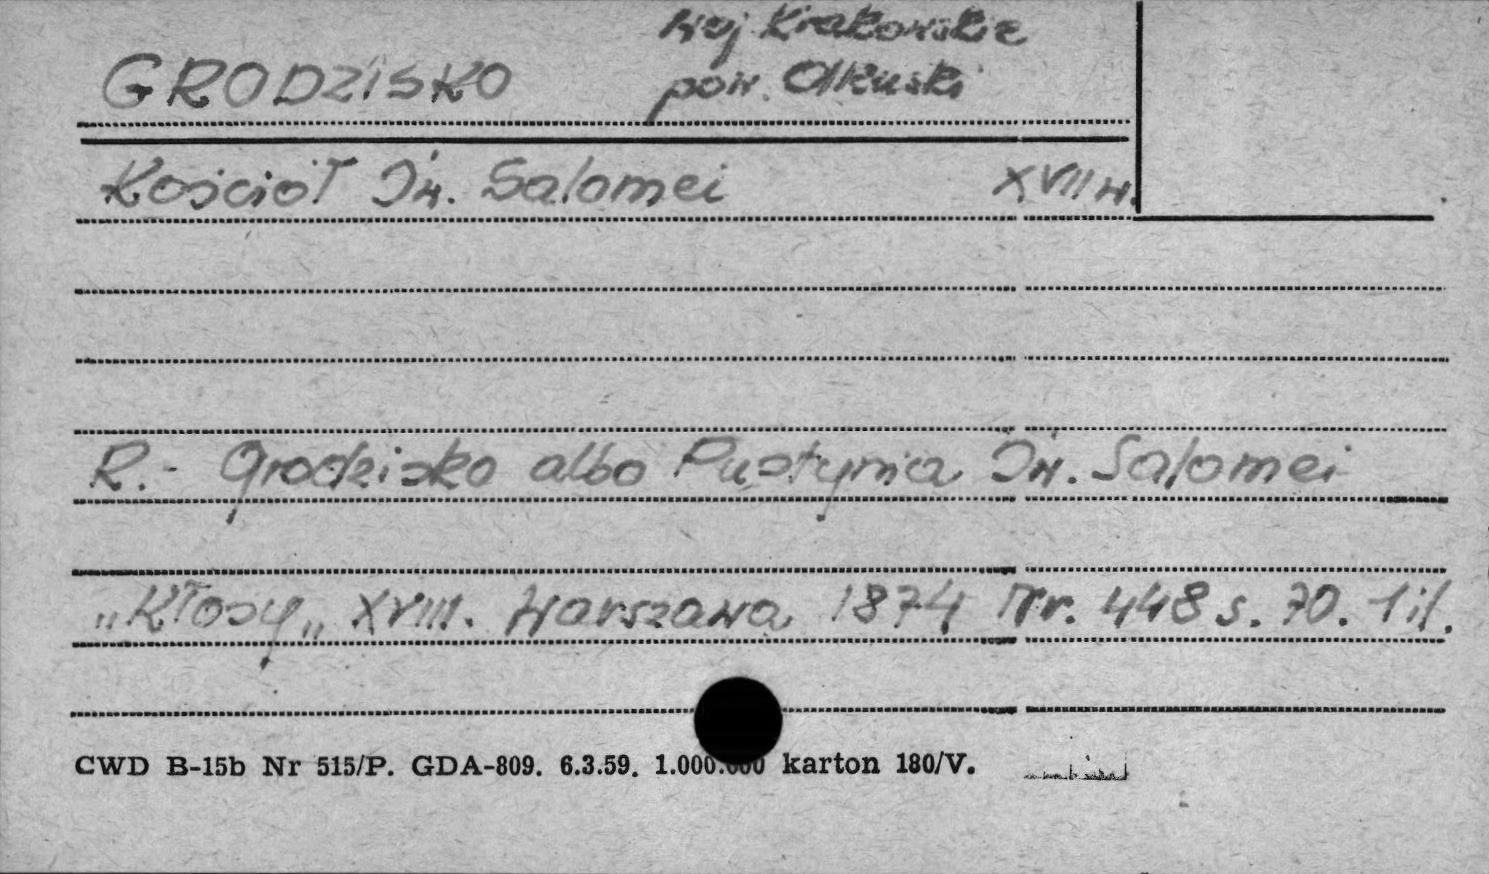 GRODZISKO woj Krakowskie
pow. Olkuski
Kościół Św. Salomei XVII w.
R.- Grodzisko albo Pustynia Św. Salomei
„Kłosy„ XVIII. Warszawa 1874 Nr. 448 s. 70. 1 il.
CWD B-15b Nr 515/P. GDA-809. 6.3.59. 1.000.000 karton 180/V.